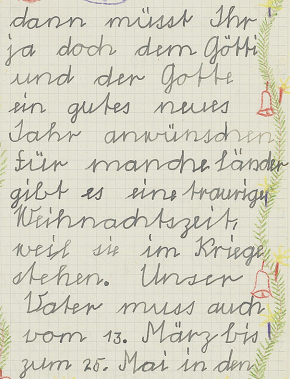 dann müsst Ihr
ja doch dem Götti
und der Gotte
ein gutes neues
Jahr anwünschen
für manche Länder
gibt es eine traurige
Weihnachtszeit,
weil sie im Kriege
stehen. Unser
Vater muss auch
vom 13. März bis
zum 25. Mai in den